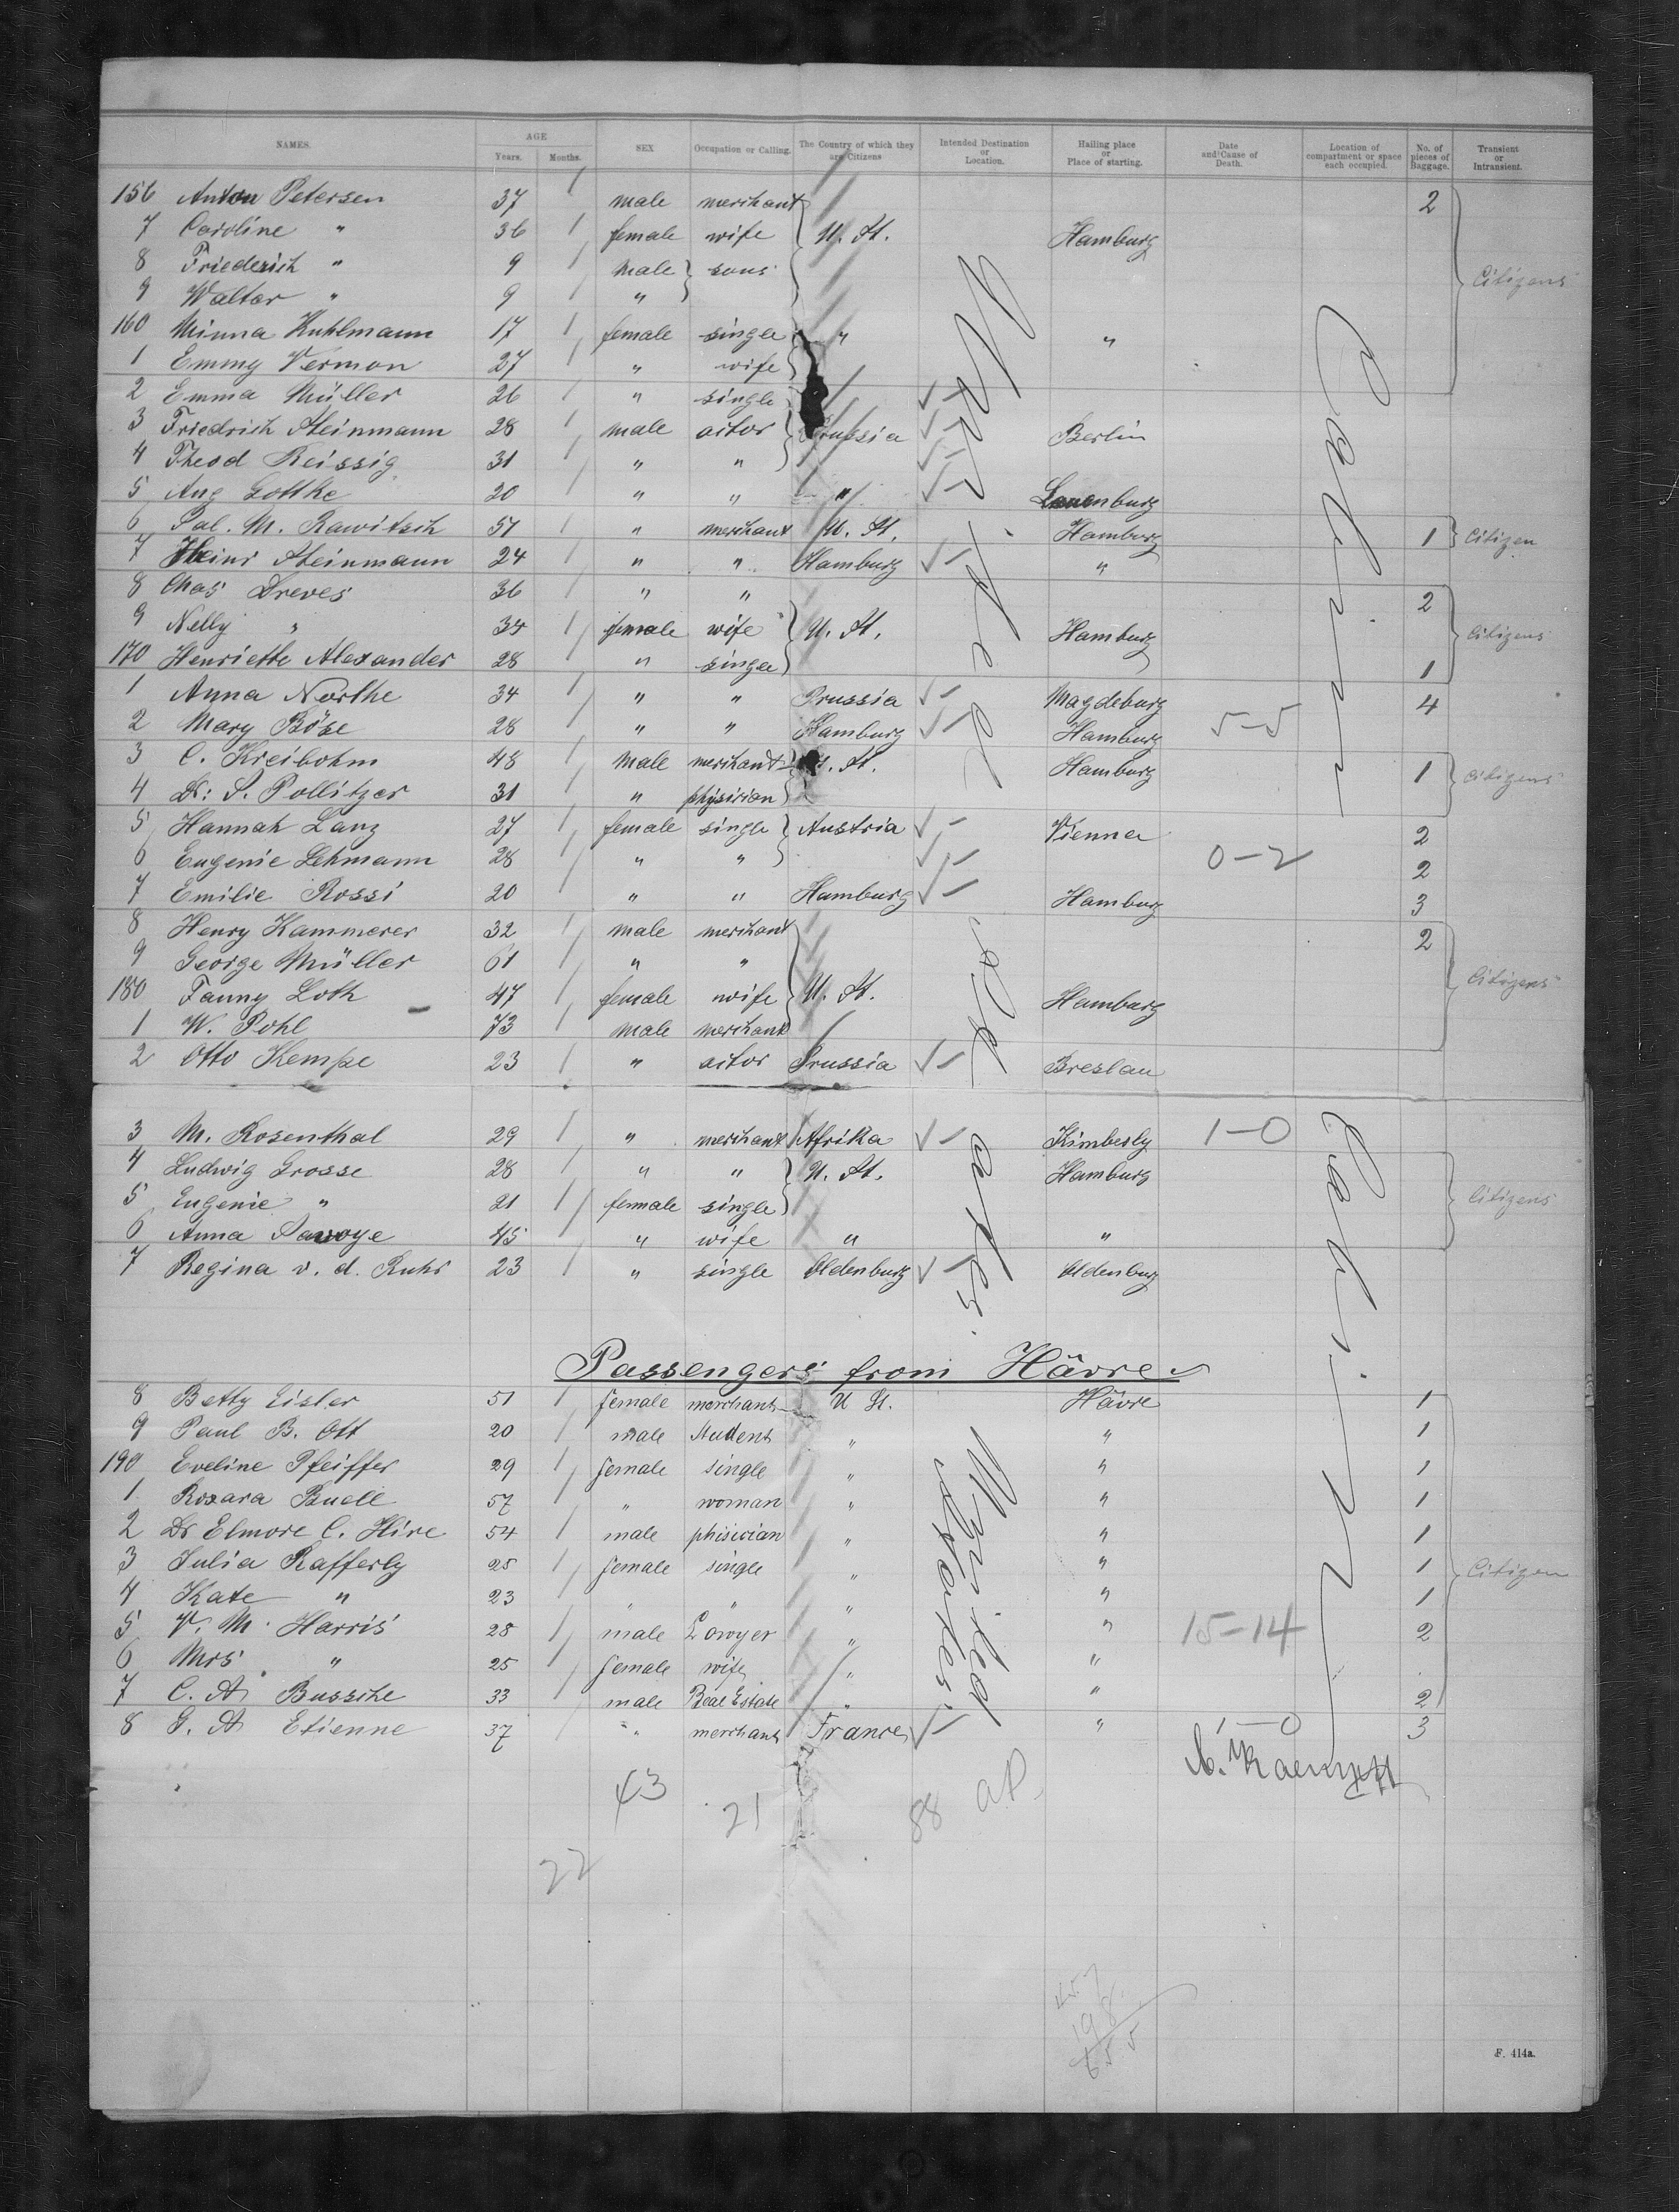 NAMES. AGE Years. Months. SEX Occupation or Calling. The Country of which they are Citizens Intended Destination or Location. Hailing place or Place of starting. Date and Cause of Death. Location of compartment or space each occupied. No. of pieces of Baggage. Transient or Intransient.
156 Anton Petersen 37 male merchant 2
7 Caroline " 36 female wife U. St. Hamburg
8 Friederich " 9 male sons Citizens
9 Walter " 9 "
160 Minna Kuhlmann 17 female single " "
1 Emmy Vermon 27 " wife
2 Emma Müller 26 " single
3 Friedrich Steinmann 28 male actor Prussia Berlin
4 Theod Reissig 31 " "
5 Aug Gottke 20 " " " Lauenburg
6 Sal. M. Rawitsch 51 " merchant U. St. Hamburg 1 Citizen
7 Heinr Steinmann 24 " " Hamburg "
8 Chas Dreves 36 " " 2
9 Nelly " 34 female wife U. St. Hamburg Citizens
170 Henriette Alexander 28 " single 1
1 Anna Northe 34 " " Prussia Magdeburg 4
2 Mary Böse 28 " " Hamburg Hamburg 5-5
3 C. Kreibohm 48 male merchant U. St. Hamburg 1 Citizens
4 Dr. S. Pollitzer 31 " physician
5 Hannah Lanz 27 female single Austria Vienna 2
6 Eugenie Lehmann 28 " " 0-2 2
7 Emilie Rossi 20 " " Hamburg Hamburg 3
8 Henry Kammerer 32 male merchant 2
9 George Müller 61 " "
180 Fanny Loth 47 female wife U. St. Hamburg Citizens
1 W. Pohl 73 male merchant
2 Otto Kempe 23 " actor Prussia Breslau
3 M. Rosenthal 29 " merchant Afrika Kimberly 1-0
4 Ludwig Grosse 28 " " U. St. Hamburg
5 Eugenie " 21 female single Citizens
6 Anna Savoye 45 " wife " "
7 Regina v. d. Ruhr 23 " single Oldenburg Oldenburg
United States.
Cabin
Cabin
Passengers from Hâvre
8 Betty Eisler 51 female merchant U St. Hâvre 1
9 Paul B. Ott 20 male Student " " 1
190 Eveline Pfeiffer 29 female single " " 1
1 Rosara Buell 57 " woman " " 1
2 Dr Elmore C. Hine 54 male phisician " " 1
3 Julia Rafferly 25 female single " " 1 Citizen
4 Kate " 23 " " " " 1
5 V. M. Harris 28 male Lawyer " " 15-14 2
6 Mrs " 25 female wife " "
7 C. A. Bussche 33 male Real Estate " " 2
8 G. A Etienne 37 " merchant France " 1-0 3
United States.
43
21
88
22
198
655
F. 414a.